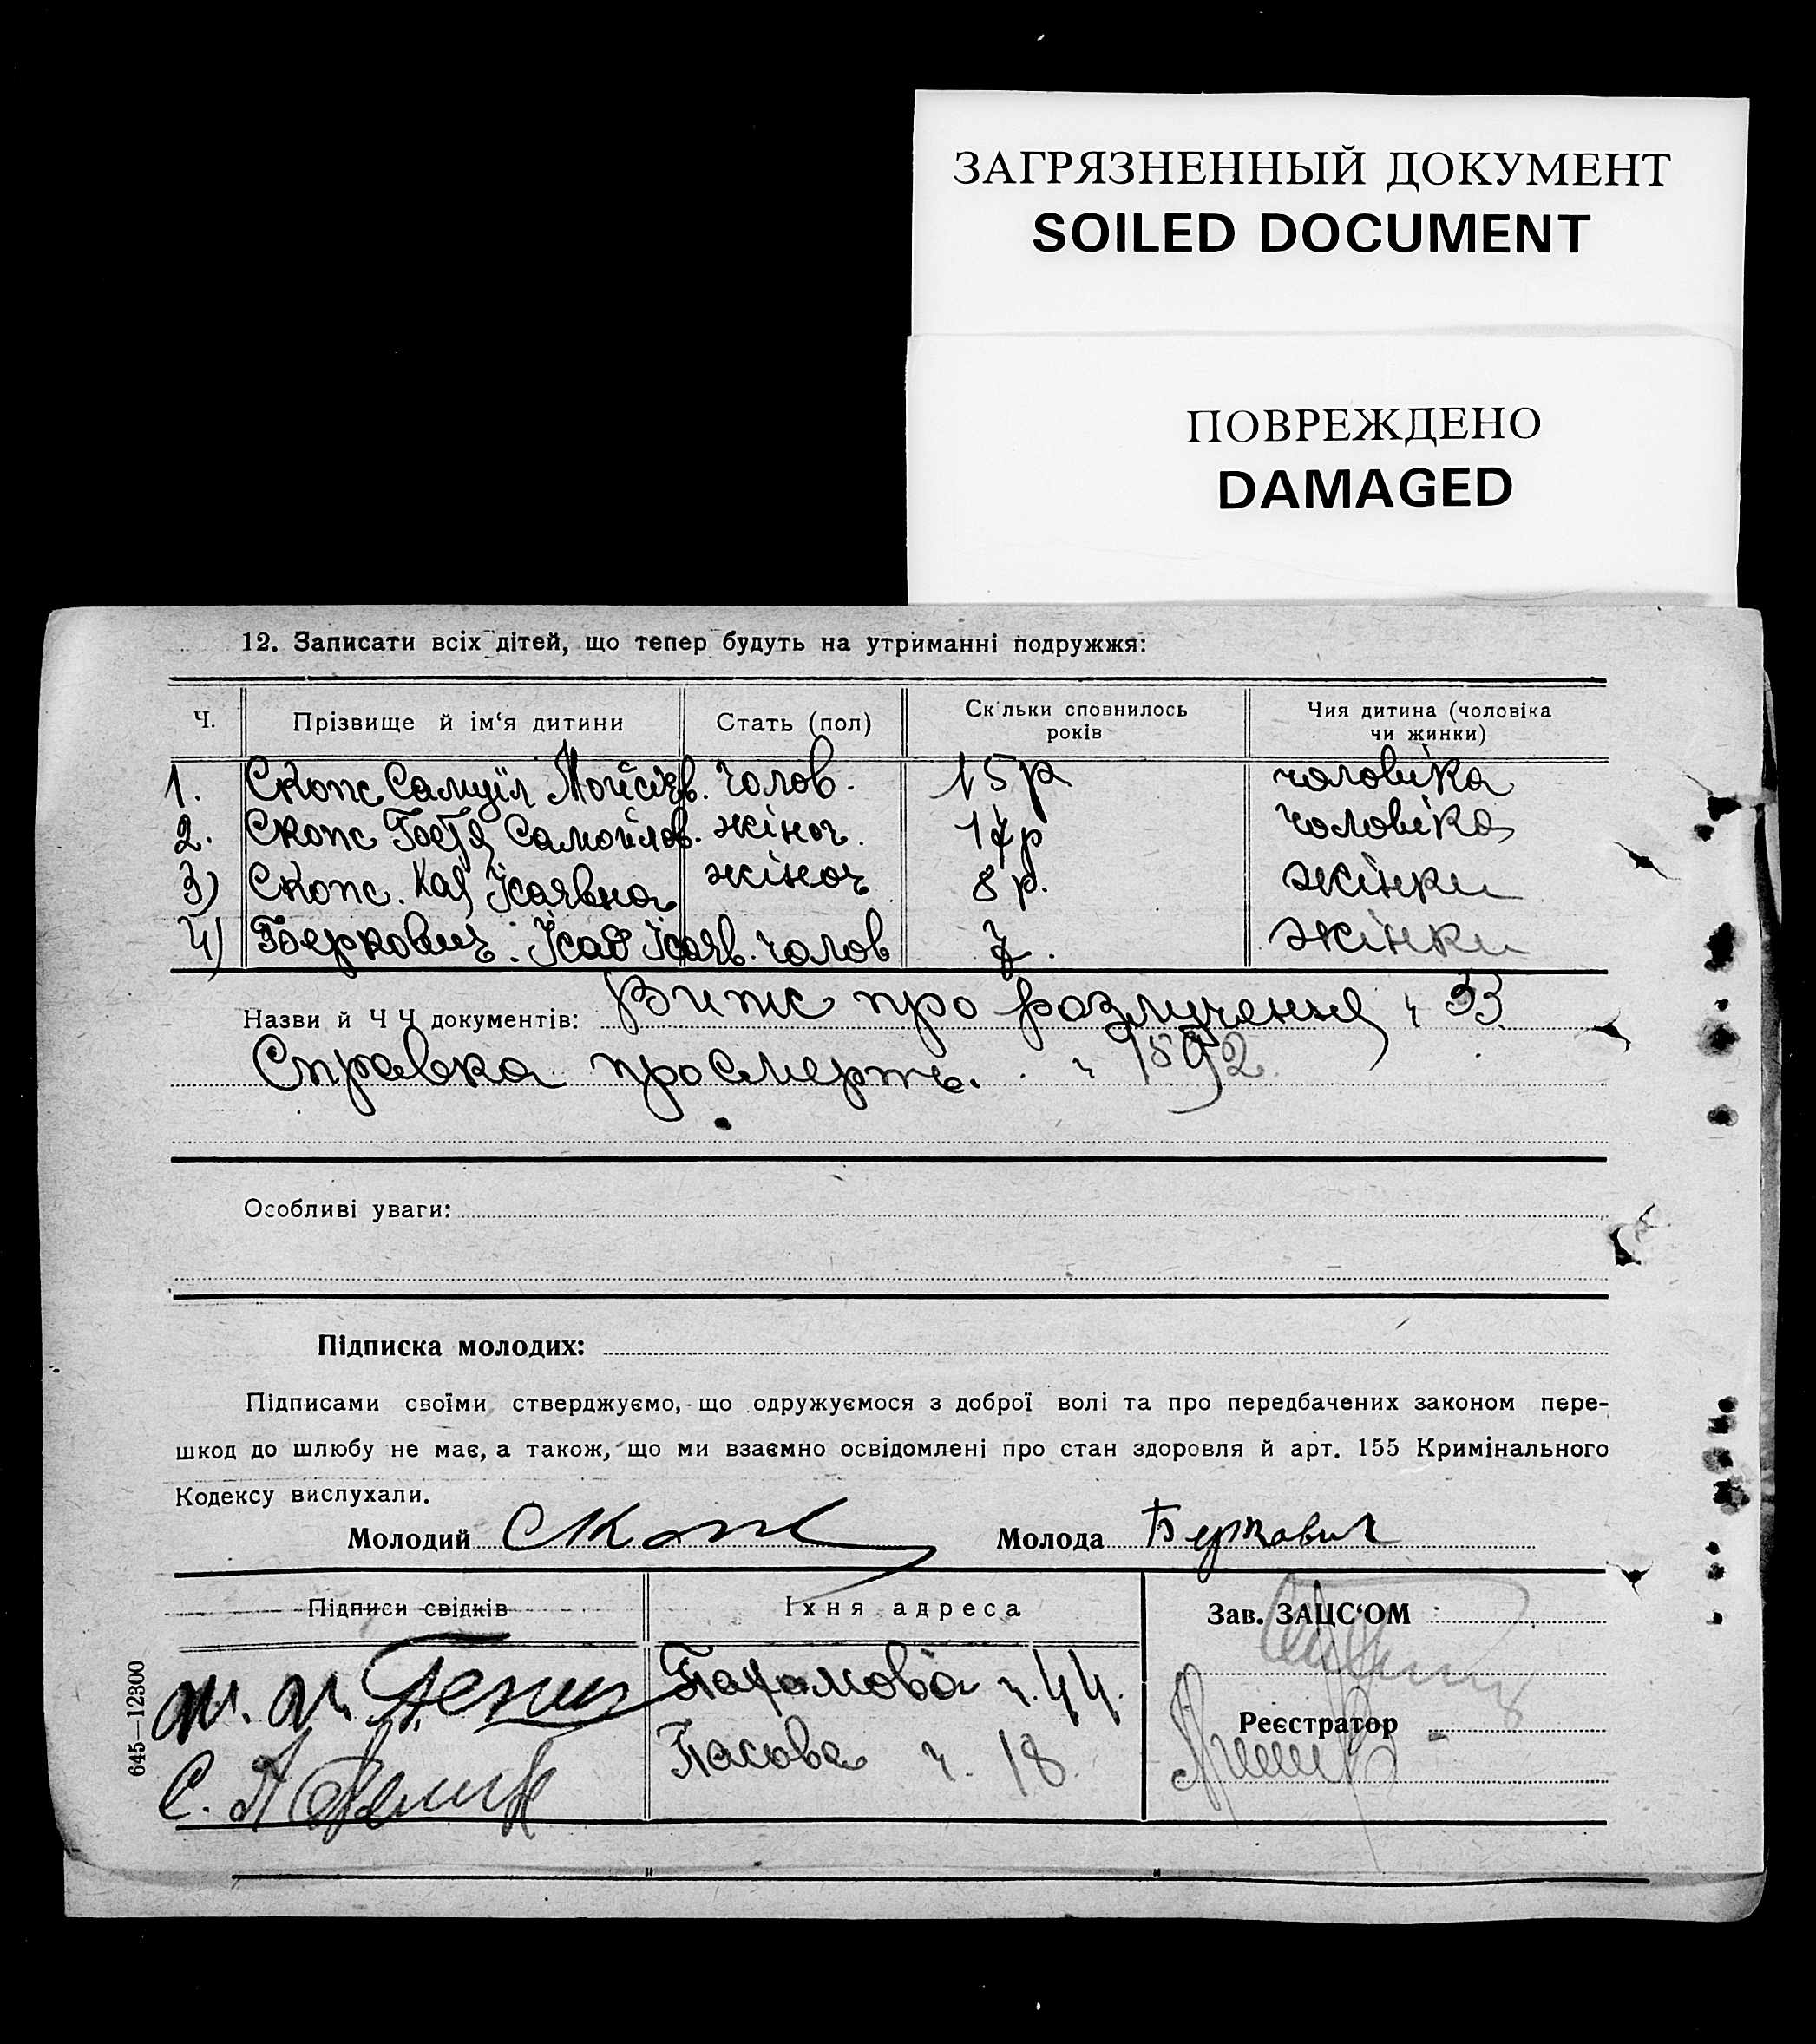 ЗАГРЯЗНЕННЫЙ ДОКУМЕНТ
SOILED DOCUMENT
ПОВРЕЖДЕНО
DAMAGED
12. Записати всіх дітей, що тепер будуть на утриманні подружжя:
Ч. Прізвище й ім‘я дитини Стать (пол) Скільки сповнилось років Чия дитина (чоловіка чи жинки)
1. Скопс Самуїл Мойсієв. чолов. 15 р чоловіка
2. Скопс Самойлов. жіноч. 17 р чоловіка
3) Скопс. Ісаявна жіноч 8 р. жінки
4) Беркович. Ісаяв. чолов 7. жінки
Назви й Ч Ч документів: Випис про розлучення ч 33
Справка про смерть. ч 1592
Особливі уваги:
Підписка молодих:
Підписами своїми стверджуємо, що одружуємося з доброї волі та про передбачених законом пере-
шкод до шлюбу не має, а також, що ми взаємно освідомлені про стан здоровля й арт. 155 Кримінального
Кодексу вислухали.
Молодий Скопс Молода Беркович
Підписи свідків Їхня адреса Зав. ЗАЦС‘ОМ
ч. 44.
Реєстратор
ч. 18.
645—12300